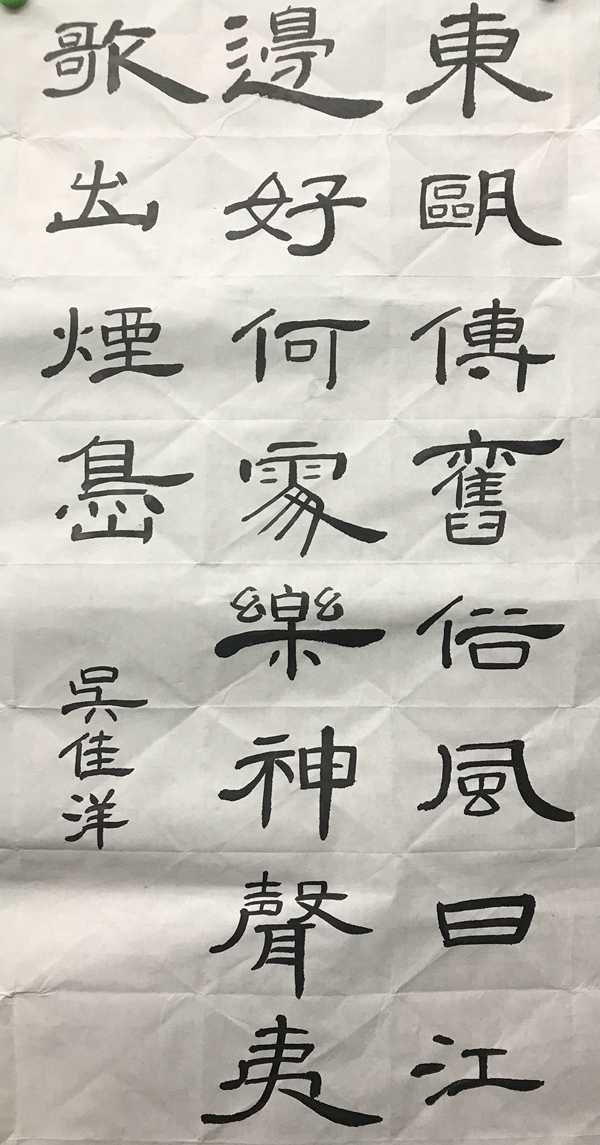 東甌傳舊俗風日江
邊好何處樂神聲夷
歌出煙島
吳佳洋